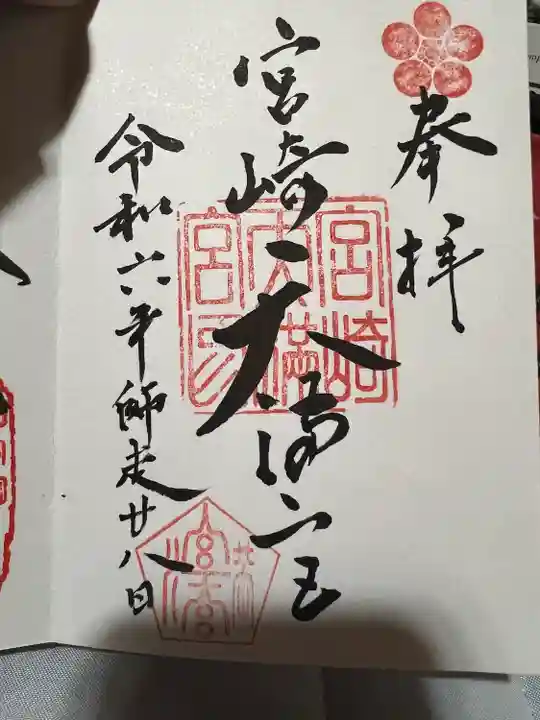 奉拝
宮崎天満宮
宮崎
天満
宮印
令和六年師走廿八日